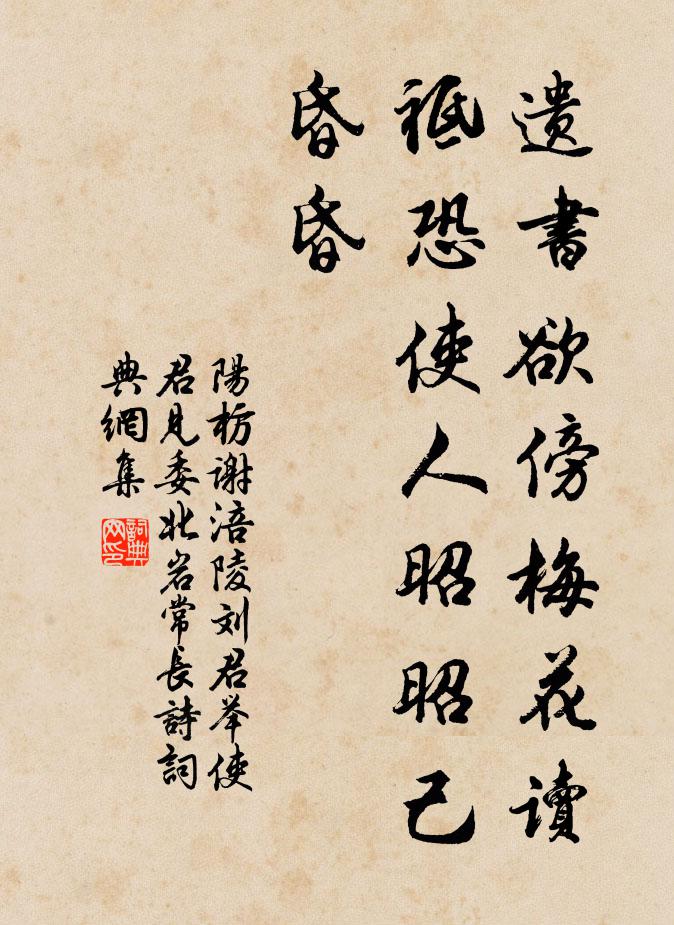 遺書欲傍梅花讀
祗恐使人昭昭己
昏昏
陽枋謝涪陵刘君举使
君見委北岩常長詩詞
典網集
詞典网印